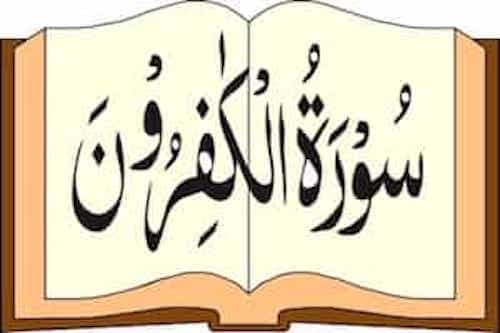 سُوْرَةُ الْكٰفِرُوْنَ